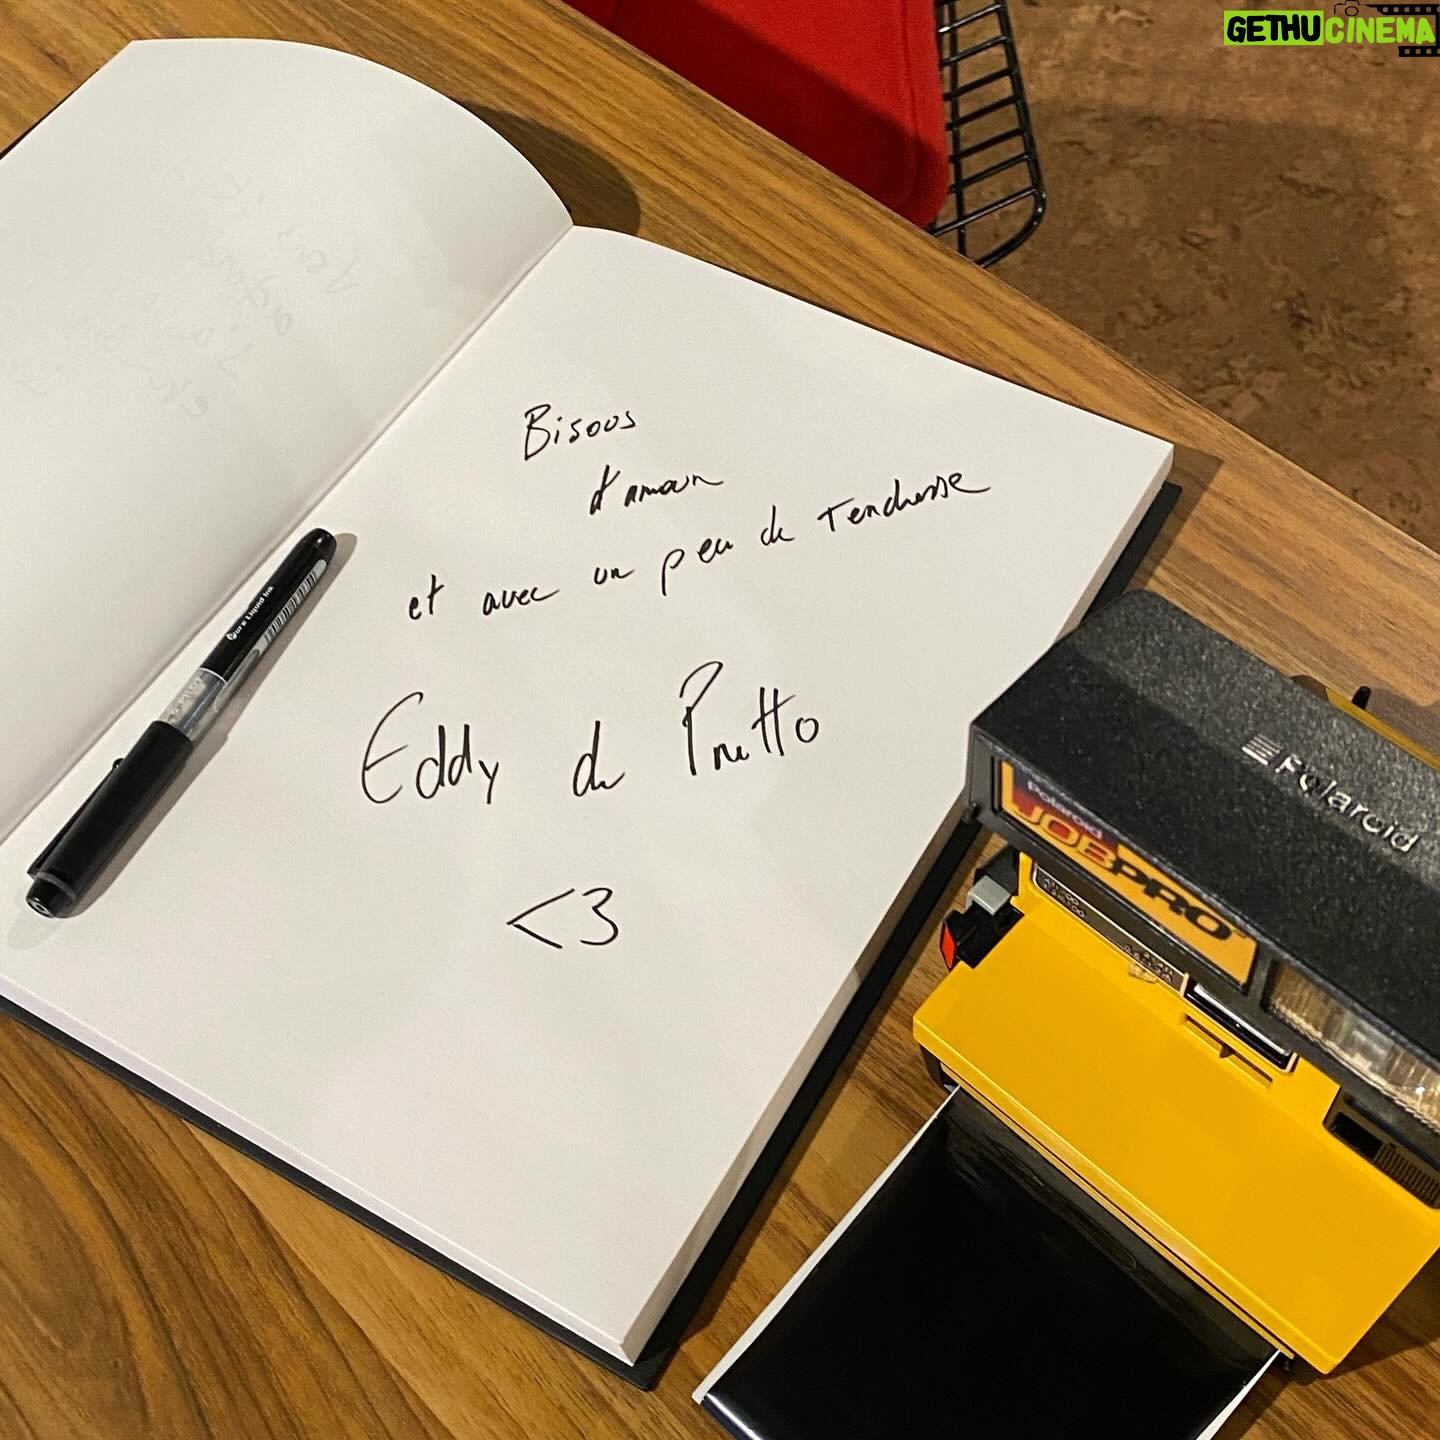 GETHUCINEMA
Bisous
d'amour
et avec un peu de Tendresse
Eddy de Pretto
<3
Pure Liquid Ink
Polaroid
Polaroid
JOBPRO